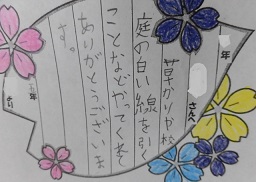 年
さんへ
草かりや校
庭の白い線を引く
ことなどやってくれて
ありがとうございま
す。
年
より